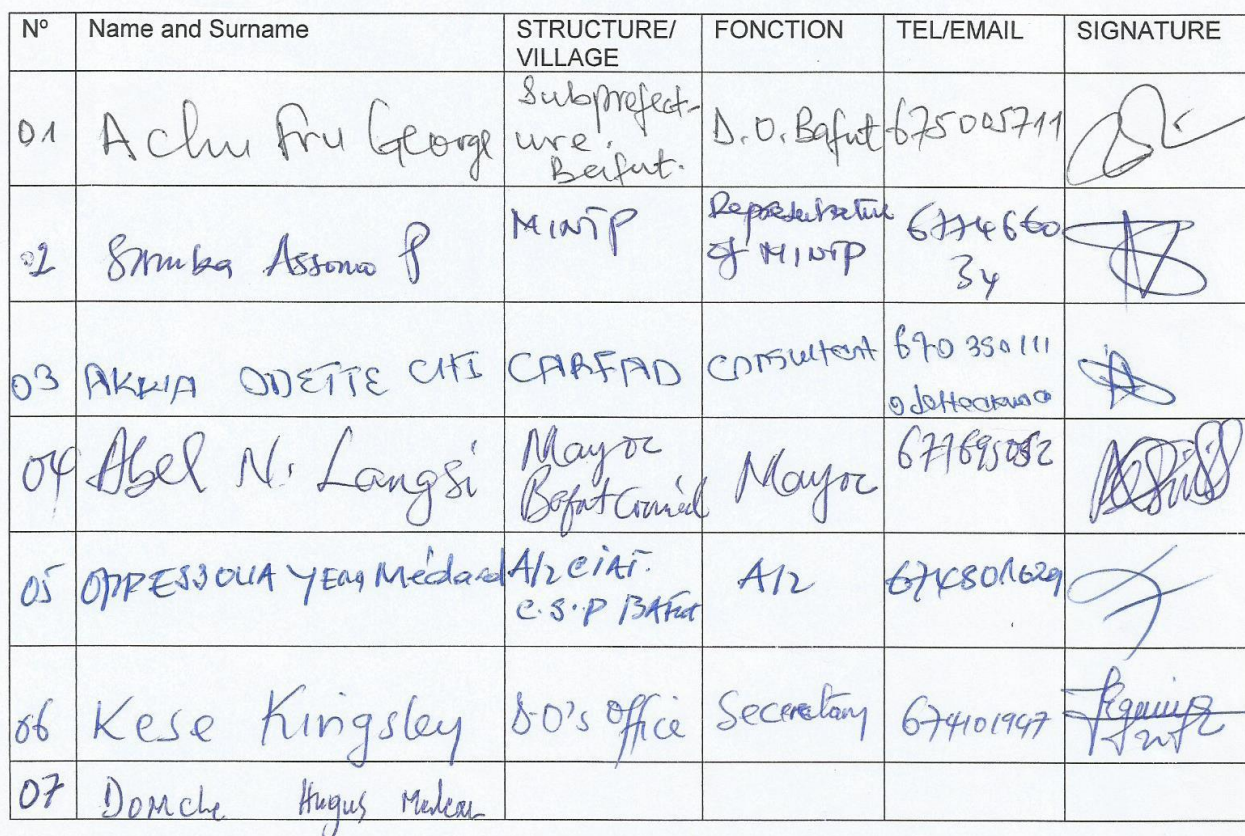 Nº Name and Surname STRUCTURE/ VILLAGE FONCTION TEL/EMAIL SIGNATURE
01 Achu Fru George Subprefect-ure. Bafut. D.O. Bafut 675005711
02 Assomo P MINTP Representative of MINTP 6774660 34
03 AKKIA ODETTE CHI CARFAD Consultant 670350111
04 Abel N. Langsi Mayor Bafut Council Mayor 677695052
05 Médard A/2 C.S.P BAFUT A/2 674801629
06 Kese Kingsley D.O's Office Secretary 674101947
07 Domche Hugus